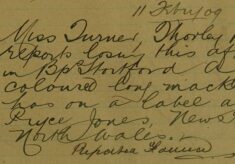 11 Feb/09
Miss Turner, Thorley
reports losing this af
in Bps Stortford a
coloured long mack
has on a label a
Pryce Jones, News
North Wales.